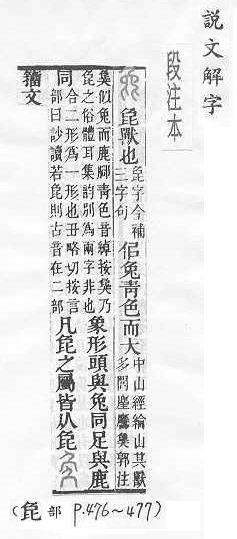 說文解字
段注本
㲋獸也
㲋字今補
三字句
佀兔靑色而大
中山經綸山其獸
多閭麈麢㚟郭注
㚟似兔而鹿腳靑色音綽按㚟乃
㲋之俗體耳集韵別爲兩字非也
象形頭與兔同足與鹿
同
合二形爲一形也丑略切按言
部曰訬讀若㲋則古音在二部
凡㲋之屬皆从㲋
籒文
(㲋部 p.476~477)